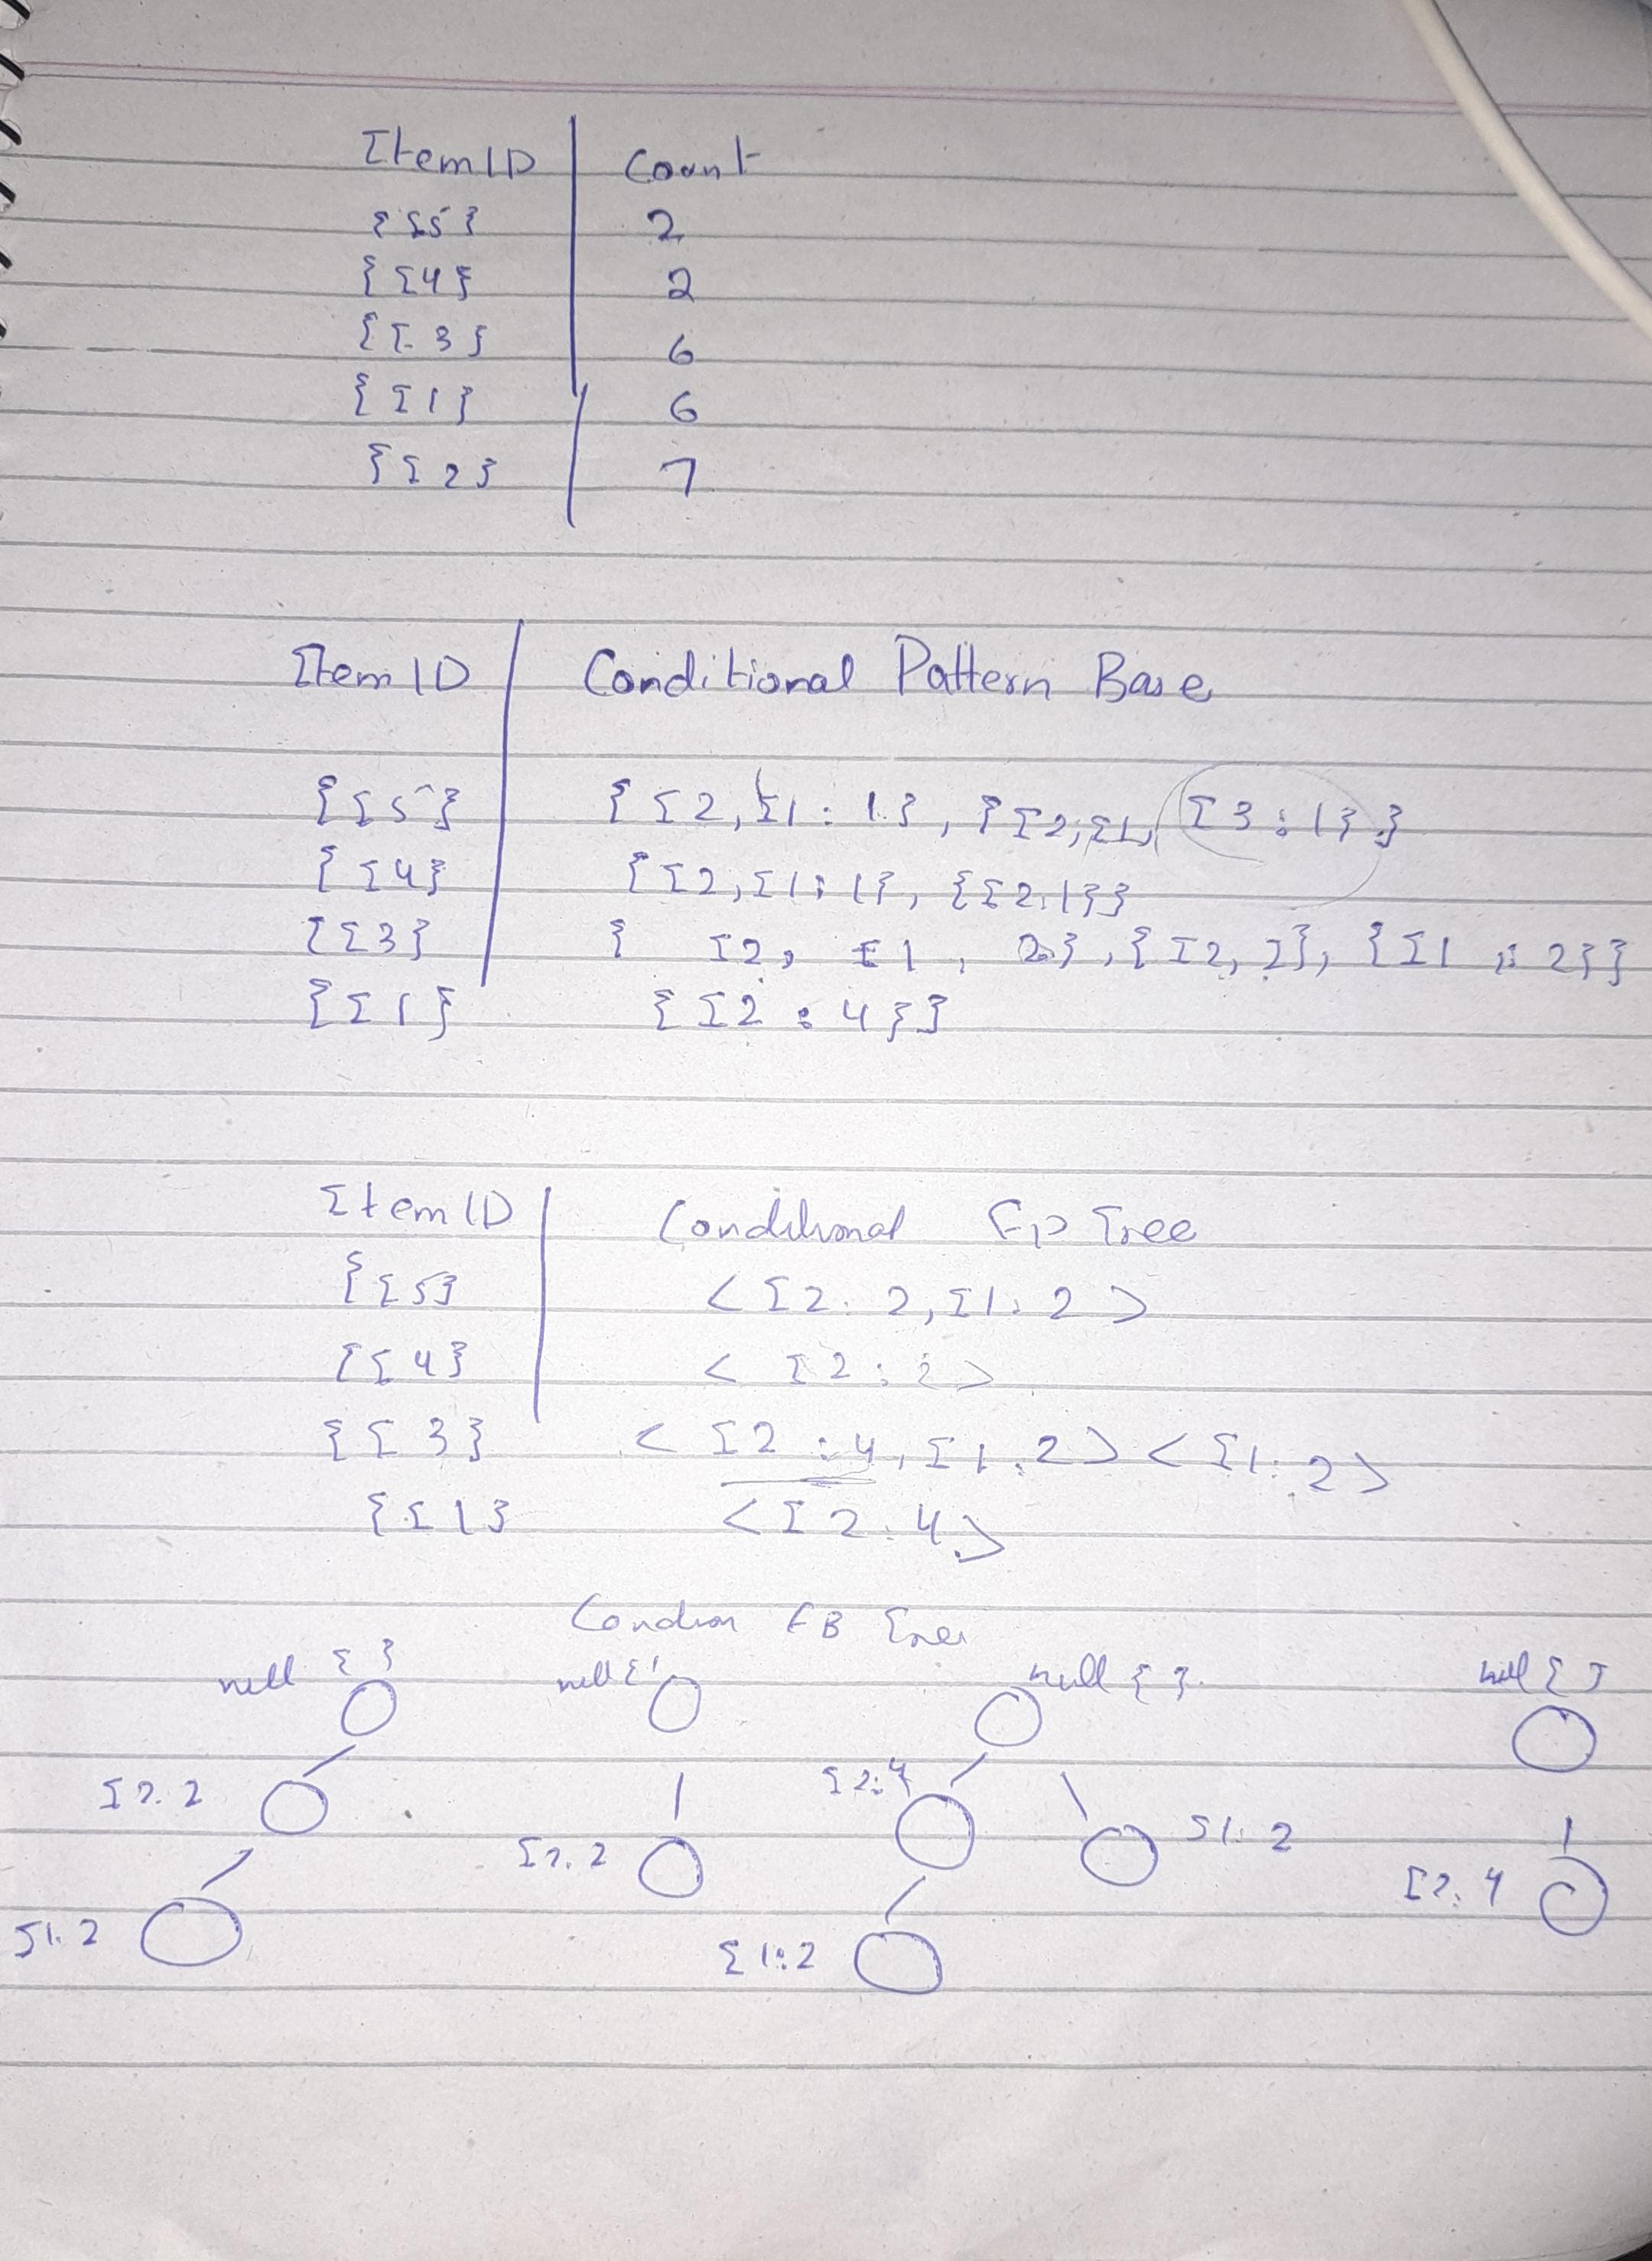 ItemID | Count
{I5} 2
{I4} 2
{I3} 6
{I1} 6
{I2} 7
Item ID | Conditional Pattern Base
{I5} {I2, I1 : 1}, {I2, I1, I3 : 1}}
{I4} {I2, I1 : 1}, {I2:1}}
{I3} { I2, I1, 2}, {I2, 2}, {I1 : 2}}
{I1} {I2 : 4}}
Item ID | Conditional FP Tree
{I5} < I2: 2, I1: 2 >
{I4} < I2 : 2 >
{I3} < I2 : 4, I1 : 2 > < I1 : 2 >
{I1} < I2 : 4 >
null { } null { null { } null { }
I2: 2 I2: 2 I2: 4 I1: 2 I2: 4
I1: 2 I1: 2